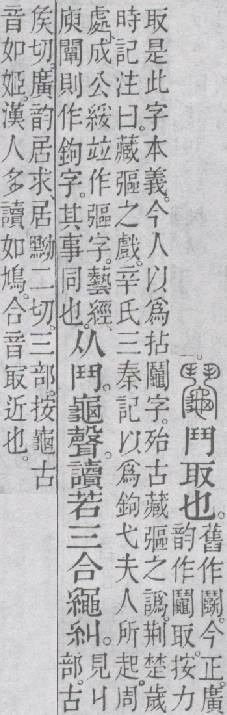 鬮鬥取也。舊作鬭。今正。廣
韵作鬮取。按力
取是此字本義。今人以爲拈鬮字。殆古藏彄之譌。荆楚歲
時記注曰。藏彄之戲。辛氏三秦記以爲鉤弋夫人所起。周
處。成公綏竝作彄字。藝經。
庾闡則作鉤字。其事同也。
从鬥。龜聲。讀若三合繩糾。見丩
部。古
矦切。廣韵居求。居黝二切。三部。按龜古
音如姬。漢人多讀如鳩。合音冣近也。